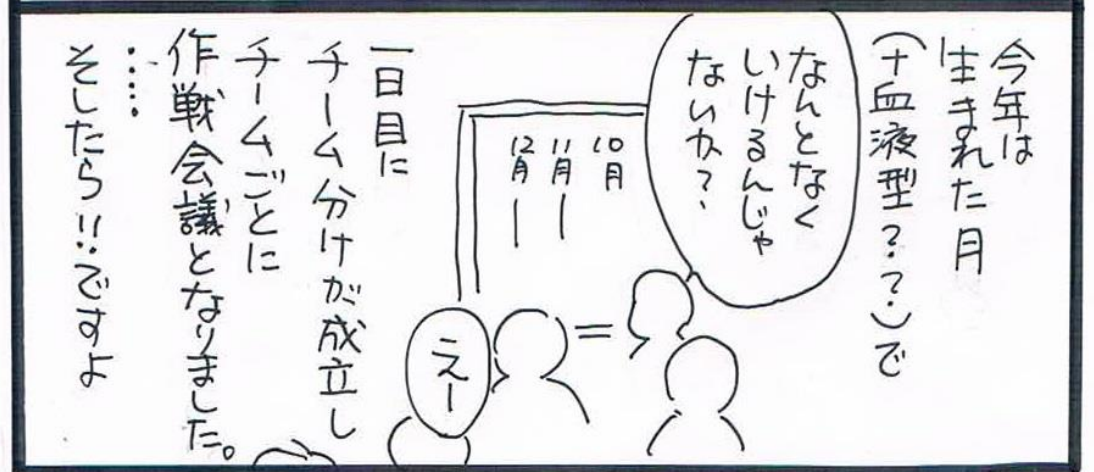 今年は
生まれた月
(+血液型??)で
なんとなく
いけるんじゃ
ないか?
10月
11月
12月
えー
一日目に
チーム分けが成立し
チームごとに
作戦会議となりました。
……
そしたら!!ですよ